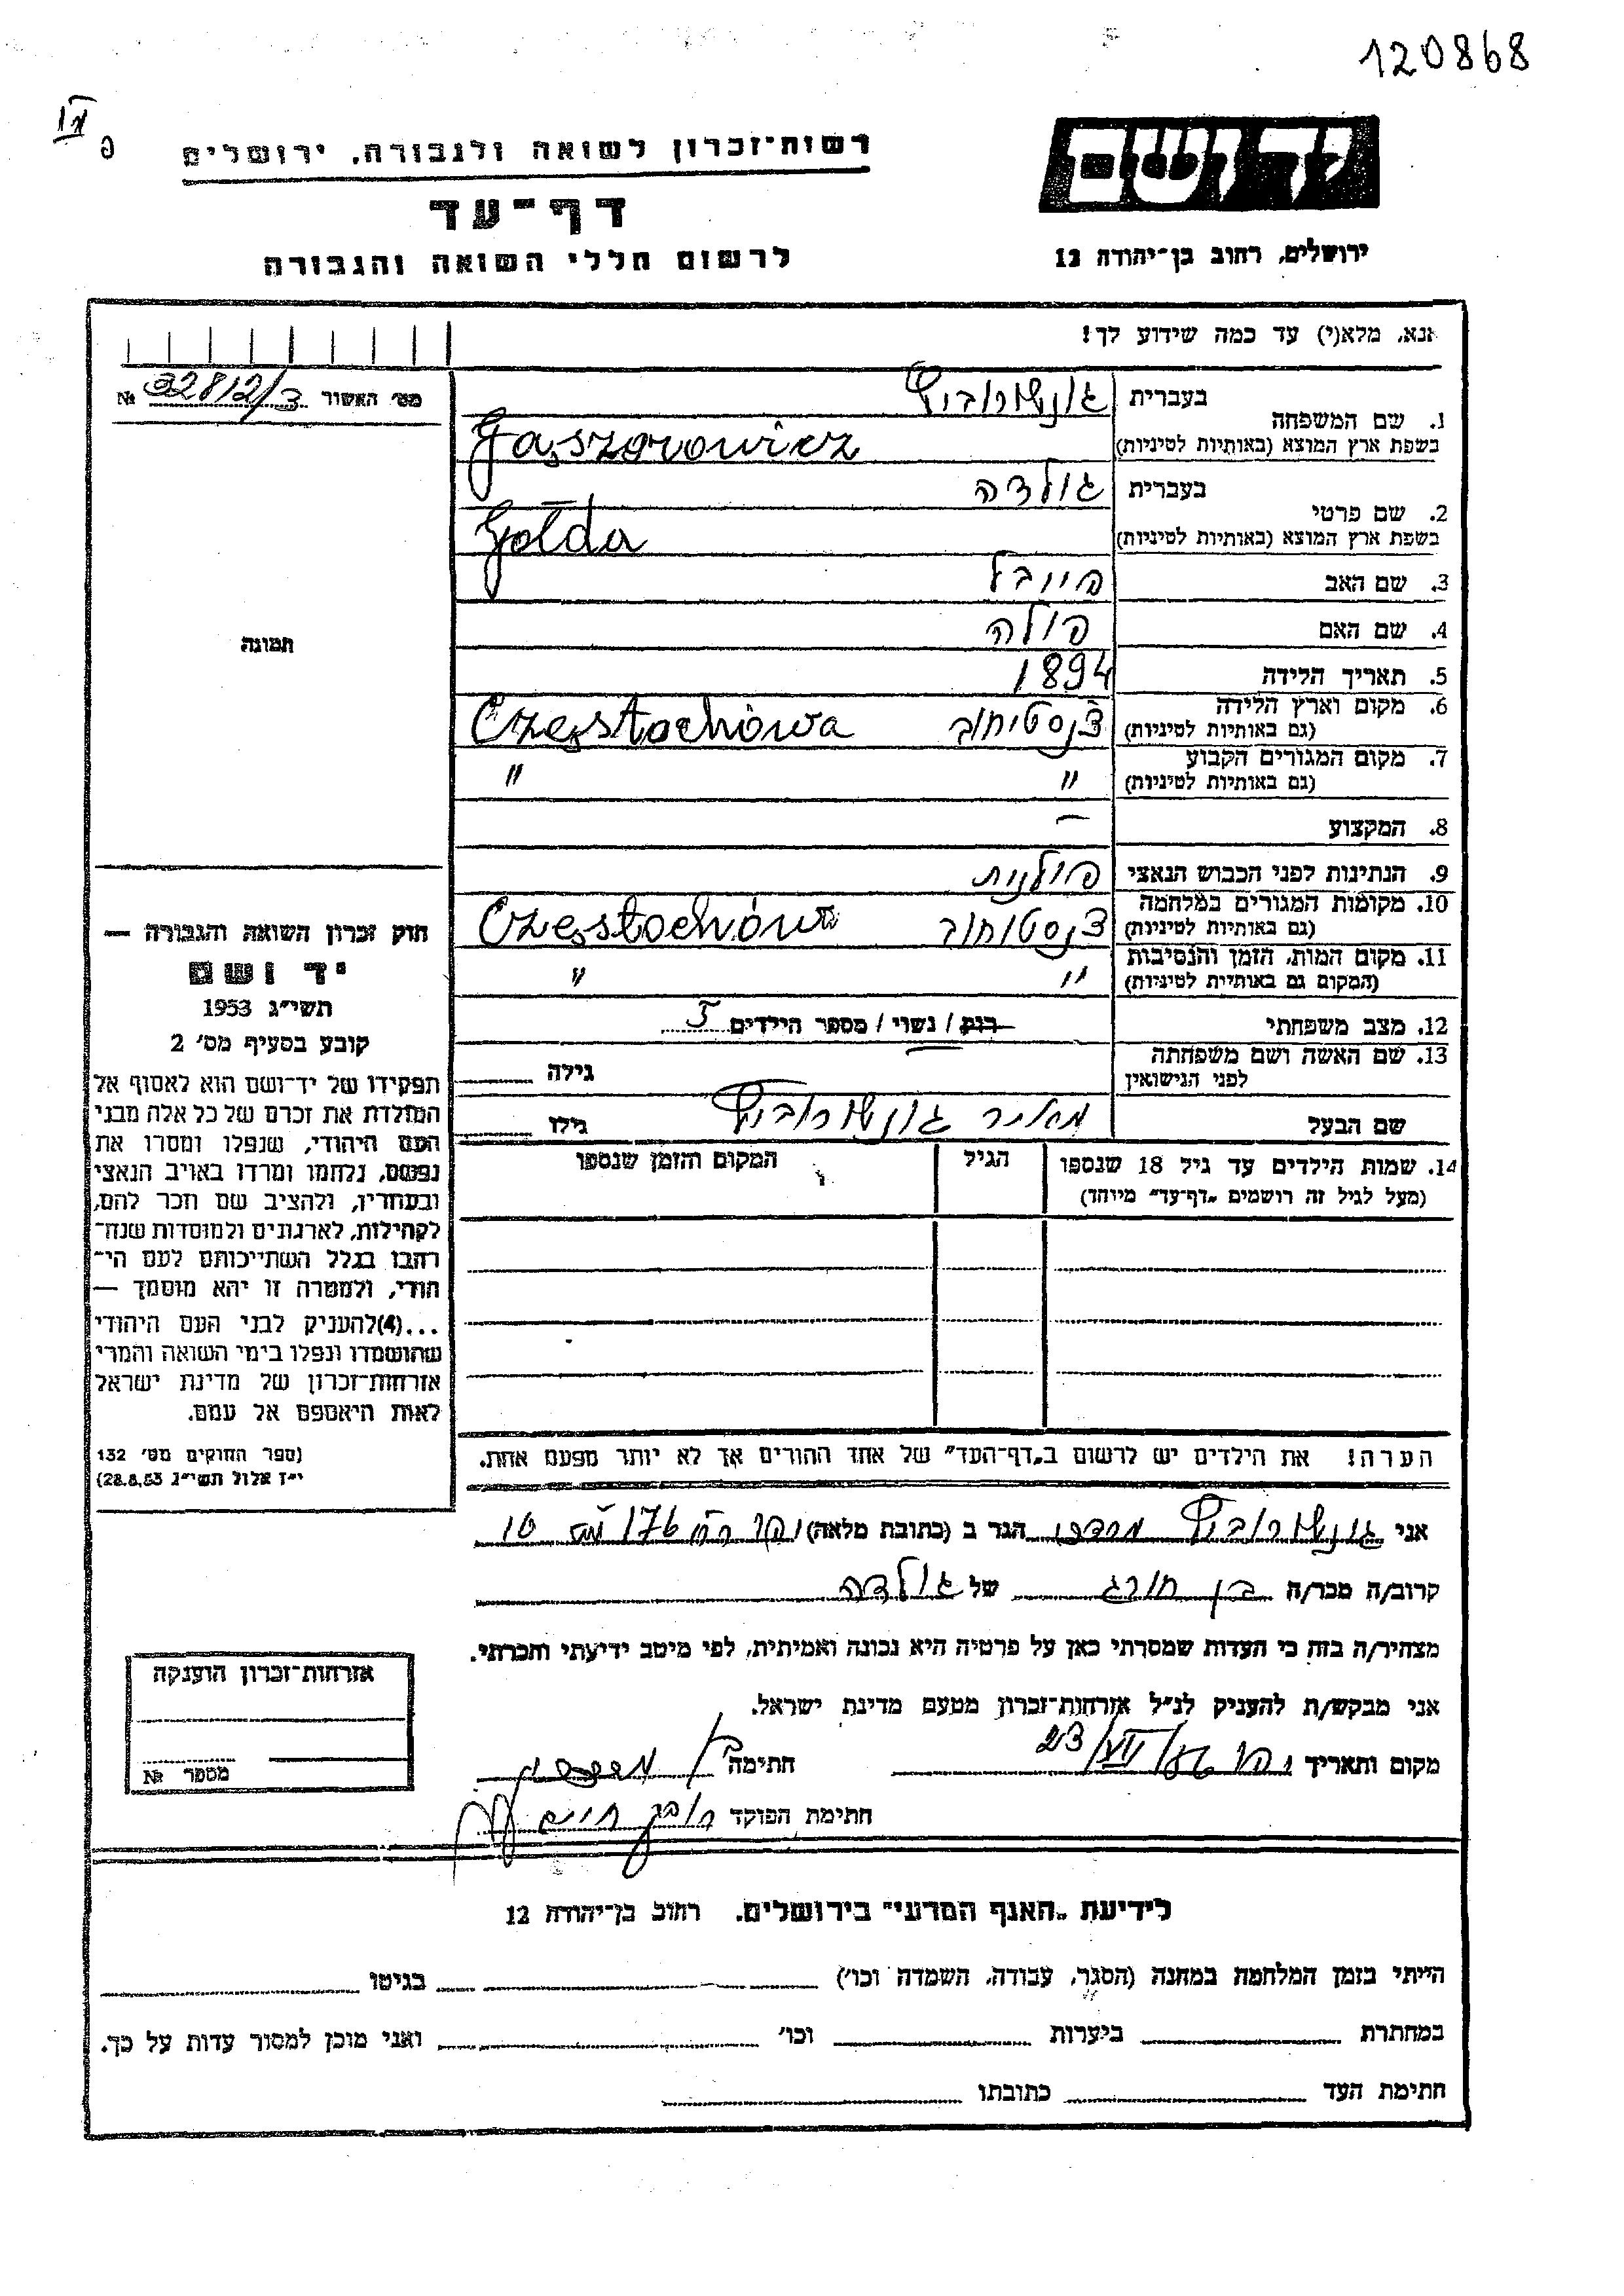 120868
רשות־זכרון לשואה ולגבורה, ירושלים
יד ושם
דף־עד
לרשום חללי השואה והגבורה
ירושלים, רחוב בן־יהודה 12
אנא, מלא(י) עד כמה שידוע לך!
מס' האשור 32812/3 №
1. שם המשפחה
בעברית
בשפת ארץ המוצא (באותיות לטיניות)
Gąszorowicz
2. שם פרטי
בעברית גולדה
בשפת ארץ המוצא (באותיות לטיניות) Gołda
3. שם האב פייבל
4. שם האם פולה
5. תאריך הלידה 1894
6. מקום וארץ הלידה
(גם באותיות לטיניות) צ'נסטוחוב Częstochówa
7. מקום המגורים הקבוע
(גם באותיות לטיניות) " "
8. המקצוע –
9. הנתינות לפני הכבוש הנאצי פולנית
10. מקומות המגורים במלחמה
(גם באותיות לטיניות) צ'נסטוחוב
11. מקום המות, הזמן והנסיבות
(המקום גם באותיית לטיניות) " "
12. מצב משפחתי רווק / נשוי / מספר הילדים 5
13. שם האשה ושם משפחתה
לפני הנישואין
גילה
שם הבעל
גילו
14. שמות הילדים עד גיל 18 שנספו
(מעל לגיל זה רושמים "דף־עד" מיוחד)
הגיל
המקום והזמן שנספו
הערה! את הילדים יש לרשום ב"דף־העד" של אחד ההורים אך לא יותר מפעם אחת.
תמונה
חוק זכרון השואה והגבורה —
יד ושם
תשי"ג 1953
קובע בסעיף מס' 2
תפקידו של יד־ושם הוא לאסוף אל
המולדת את זכרם של כל אלה מבני
העם היהודי, שנפלו ומסרו את
נפשם, נלחמו ומרדו באויב הנאצי
ובעוזריו, ולהציב שם וזכר להם,
לקהילות, לארגונים ולמוסדות שנח־
רבו בגלל השתייכותם לעם הי־
הודי, ולמטרה זו יהא מוסמך —
...(4) להעניק לבני העם היהודי
שהושמדו ונפלו בימי השואה והמרי
אזרחות־זכרון של מדינת ישראל
לאות היאספם אל עמם.
(ספר החוקים מס' 132
י"ז אלול תשי"ג 28.8.53)
אני מרדכי הגר ב (כתובת מלאה)
קרוב/ה מכר/ה בן חורג של גולדה
מצהיר/ה בזה כי העדות שמסרתי כאן על פרטיה היא נכונה ואמיתית, לפי מיטב ידיעתי והכרתי.
אני מבקש/ת להעניק לנ"ל אזרחות־זכרון מטעם מדינת ישראל.
מקום ותאריך חתימה
חתימת הפוקד
אזרחות־זכרון הוענקה
מספר №
לידיעת "האגף המדעי" בירושלים, רחוב בן־יהודה 12
הייתי בזמן המלחמה במחנה (הסגר, עבודה, השמדה וכו') בגיטו
במחתרת ביערות וכו' ואני מוכן למסור עדות על כך.
חתימת העד כתובתו